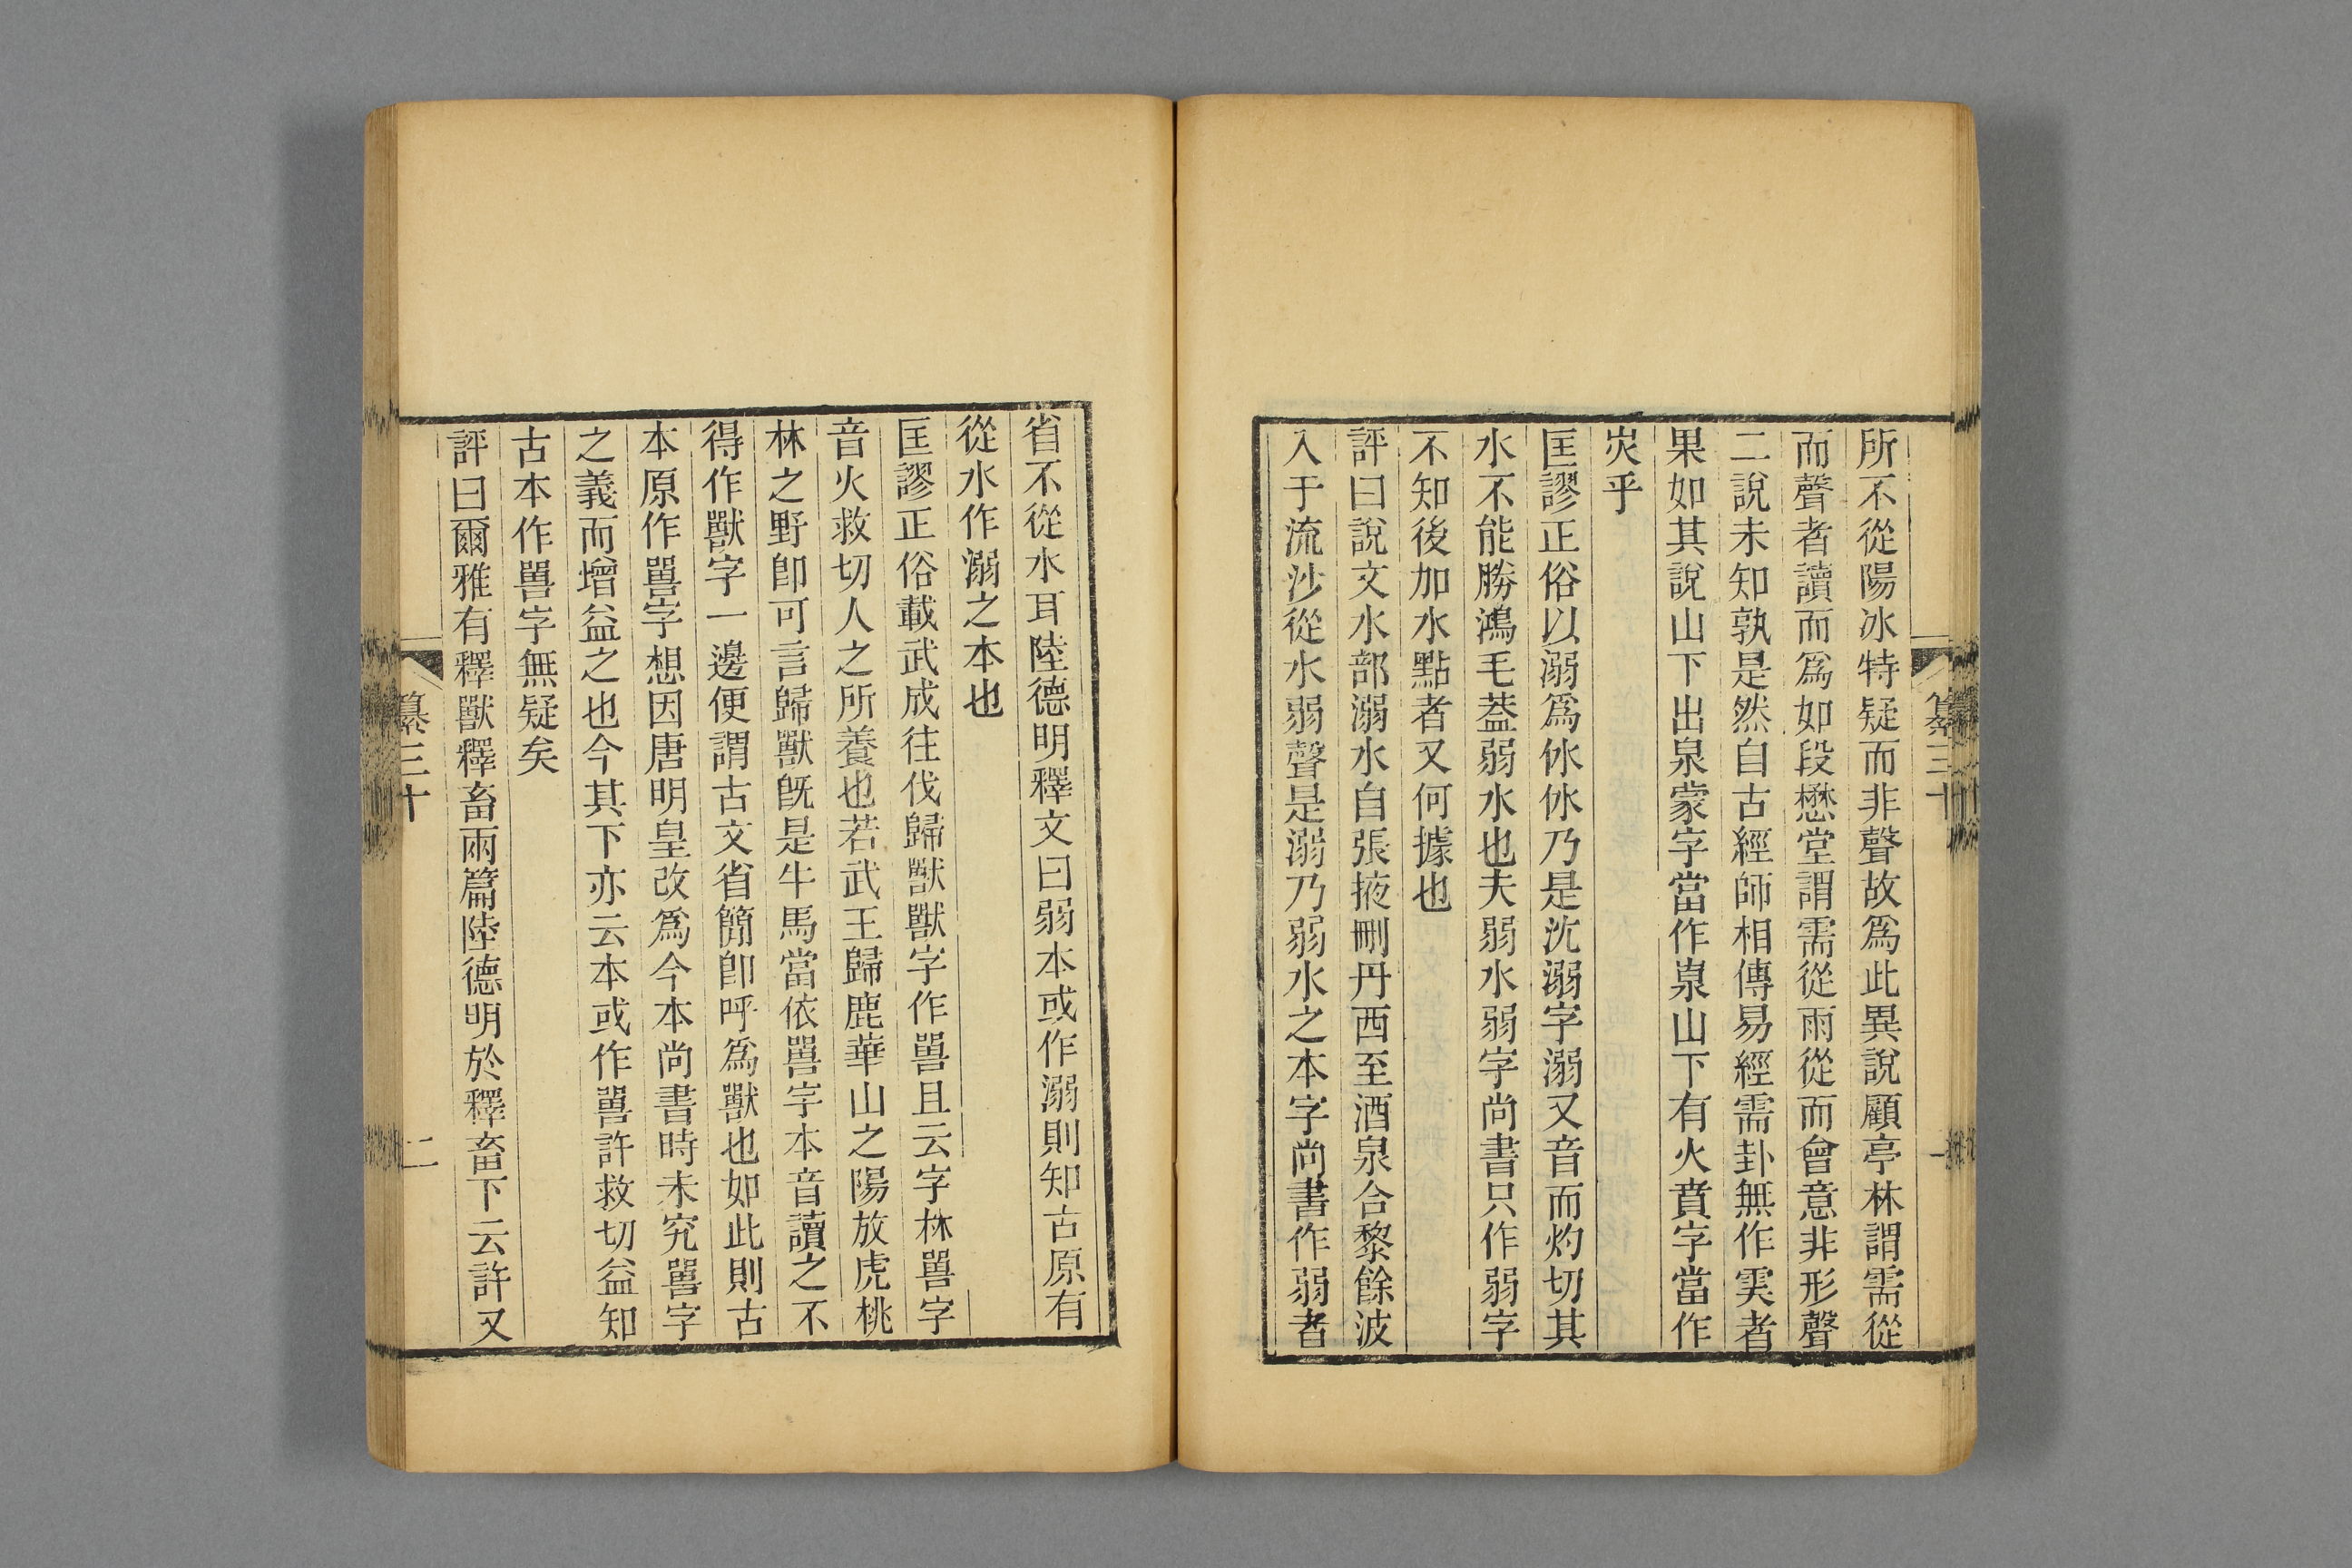 所不從陽冰特疑而非聲故爲此異說顧亭林謂需從
而聲者讀而爲如段懋堂謂需從雨從而會意非形聲
二說未知孰是然自古經師相傳易經需卦無作䨲者
果如其說山下出泉蒙字當作㵘山下有火賁字當作
灾乎
匡謬正俗以溺爲㲻㲻乃是沈溺字溺又音而灼切其
水不能勝鴻毛葢弱水也夫弱水弱字尚書只作弱字
不知後加水點者又何據也
評曰說文水部溺水自張掖刪丹西至酒泉合黎餘波
入于流沙從水弱聲是溺乃弱水之本字尚書作弱者
省不從水耳陸德明釋文曰弱本或作溺則知古原有
從水作溺之本也
匡謬正俗載武成往伐歸獸獸字作嘼且云字林嘼字
音火救切人之所養也若武王歸鹿華山之陽放虎桃
林之野卽可言歸獸旣是牛馬當依嘼字本音讀之不
得作獸字一邊便謂古文省簡卽呼爲獸也如此則古
本原作嘼字想因唐明皇改爲今本尚書時未究嘼字
之義而增益之也今其下亦云本或作嘼許救切益知
古本作嘼字無疑矣
評曰爾雅有釋獸釋畜兩篇陸德明於釋畜下云許又
纂三十
一
纂三十
二